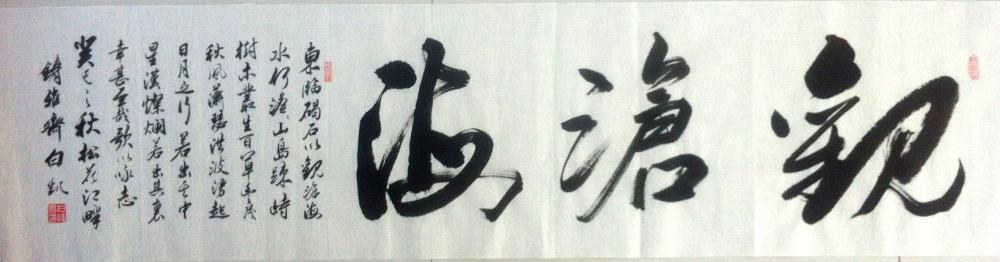 觀滄海
東臨碣石以觀滄海
水何澹澹山島竦峙
樹木叢生百草豐茂
秋風蕭瑟洪波湧起
日月之行若出其中
星漢燦爛若出其裏
幸甚至哉歌以詠志
癸巳之秋松花江畔
白凱